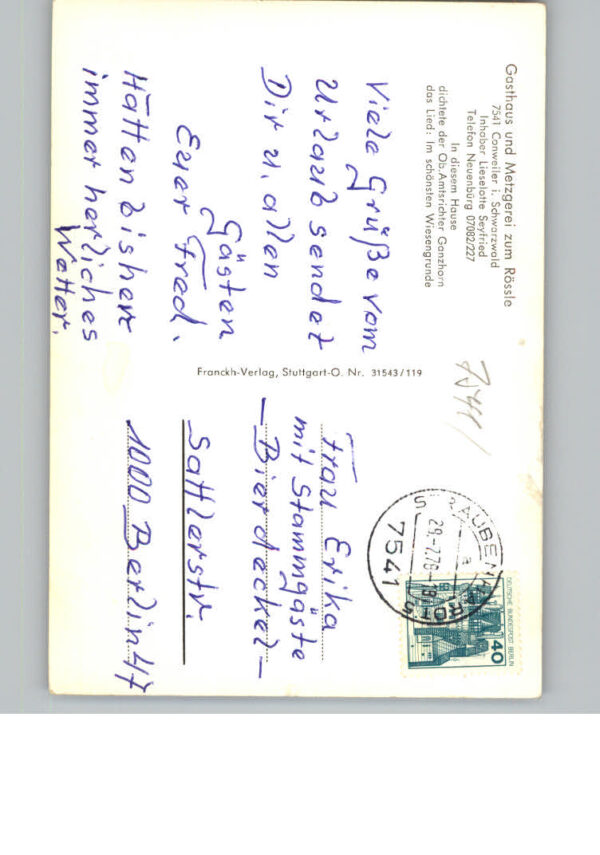 Gasthaus und Metzgerei zum Rössle
7541 Conweiler i. Schwarzwald
Inhaber Lieselotte Seyfried
Telefon Neuenbürg 07082/227
In diesem Hause
dichtete der Ob. Amtsrichter Ganzhorn
das Lied: Im schönsten Wiesengrunde
Viele Grüße vom
Urlaub sendet
Dir u. allen
Gästen
Euer Fred.
Hätten bisher
immer herliches
Wetter.
Franckh-Verlag, Stuttgart-O. Nr. 31543/119
7541/
STRAUBENHARDT 5
7541
DEUTSCHE BUNDESPOST BERLIN
40
Frau Erika
mit Stammgäste
— Bierdeckel —
Sattlerstr.
1000 Berlin 47